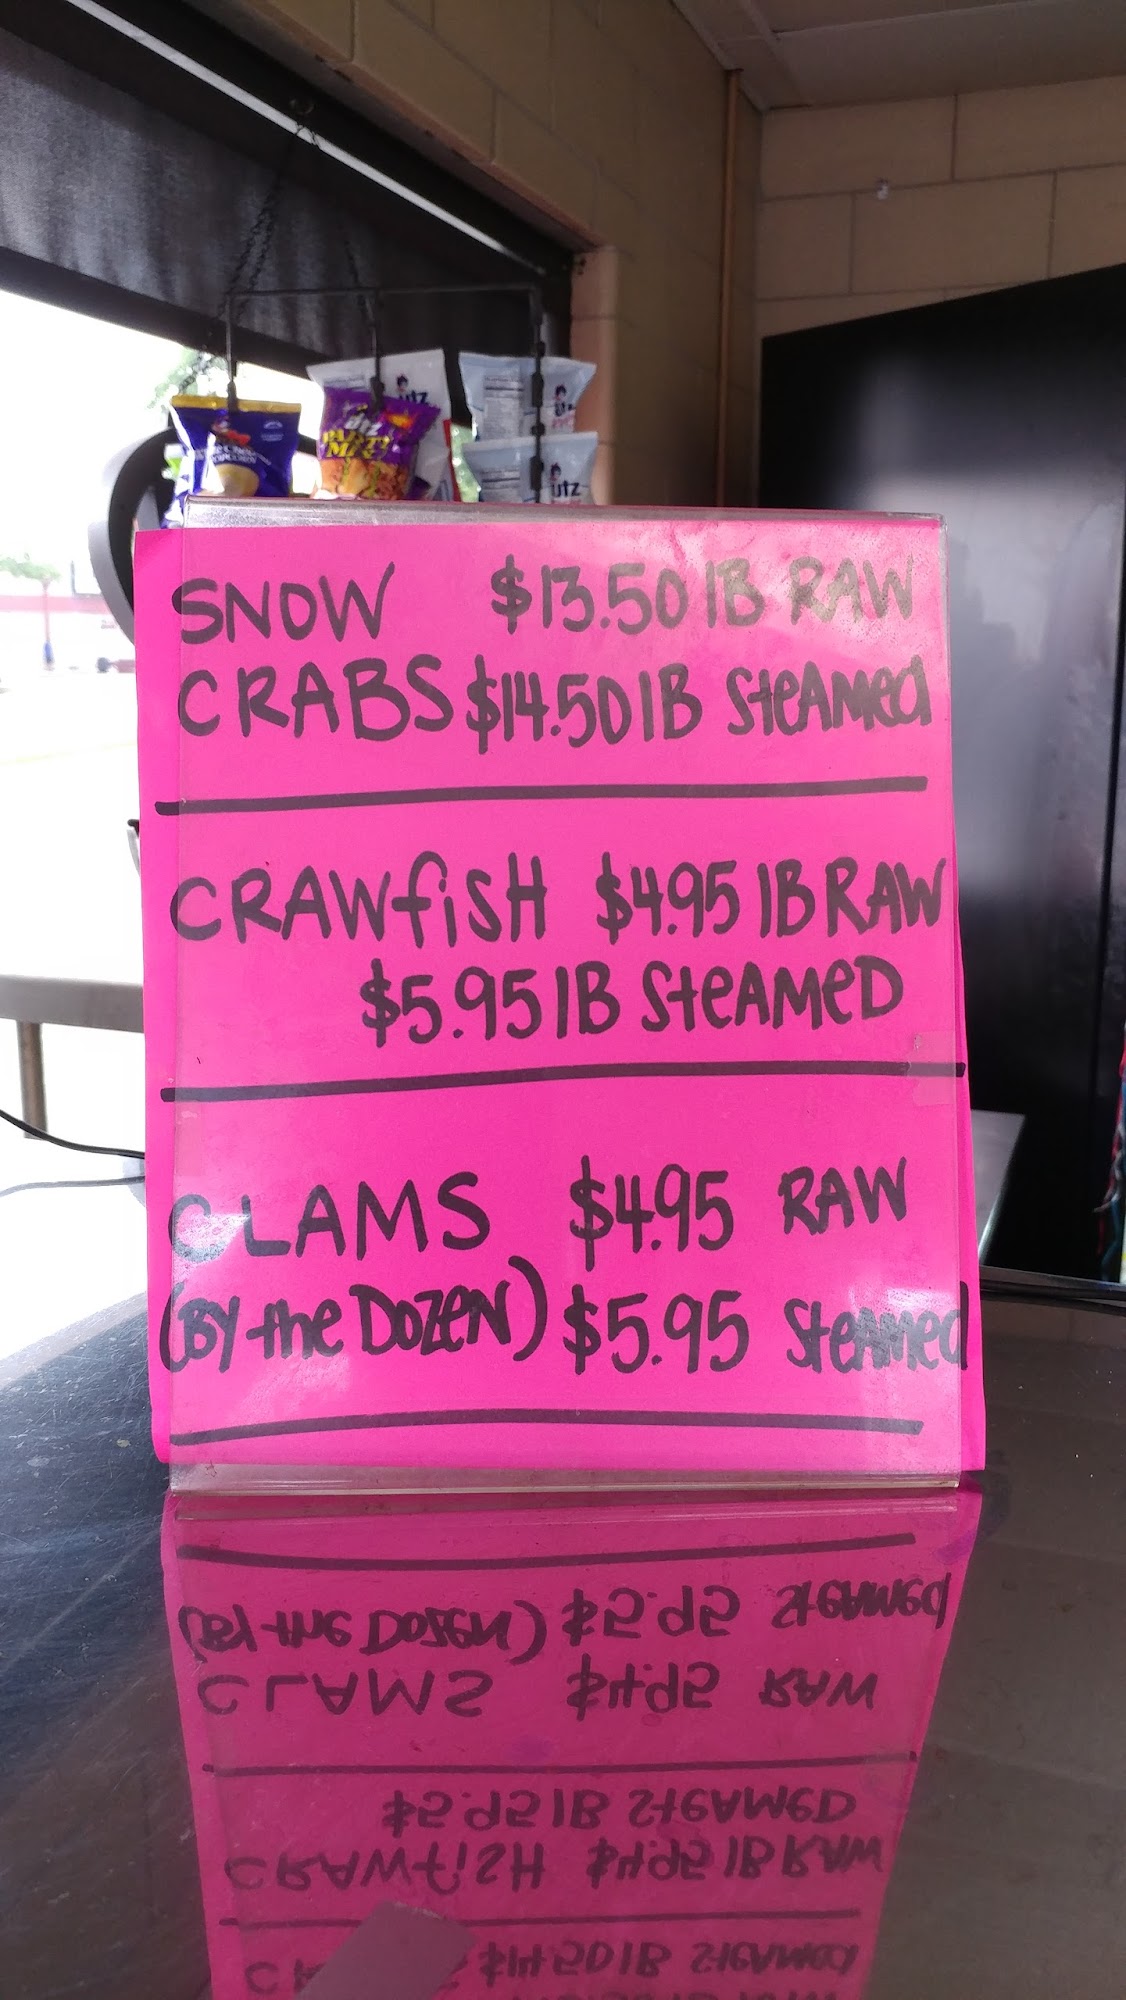 utz
utz
PARTY
MIX
utz
SNOW $13.50 lB RAW
CRABS $14.50 lB SteAMed
CRAWfiSH $4.95 lB RAW
$5.95 lB SteAMeD
CLAMS $4.95 RAW
(By the DozeN) $5.95 SteAMed